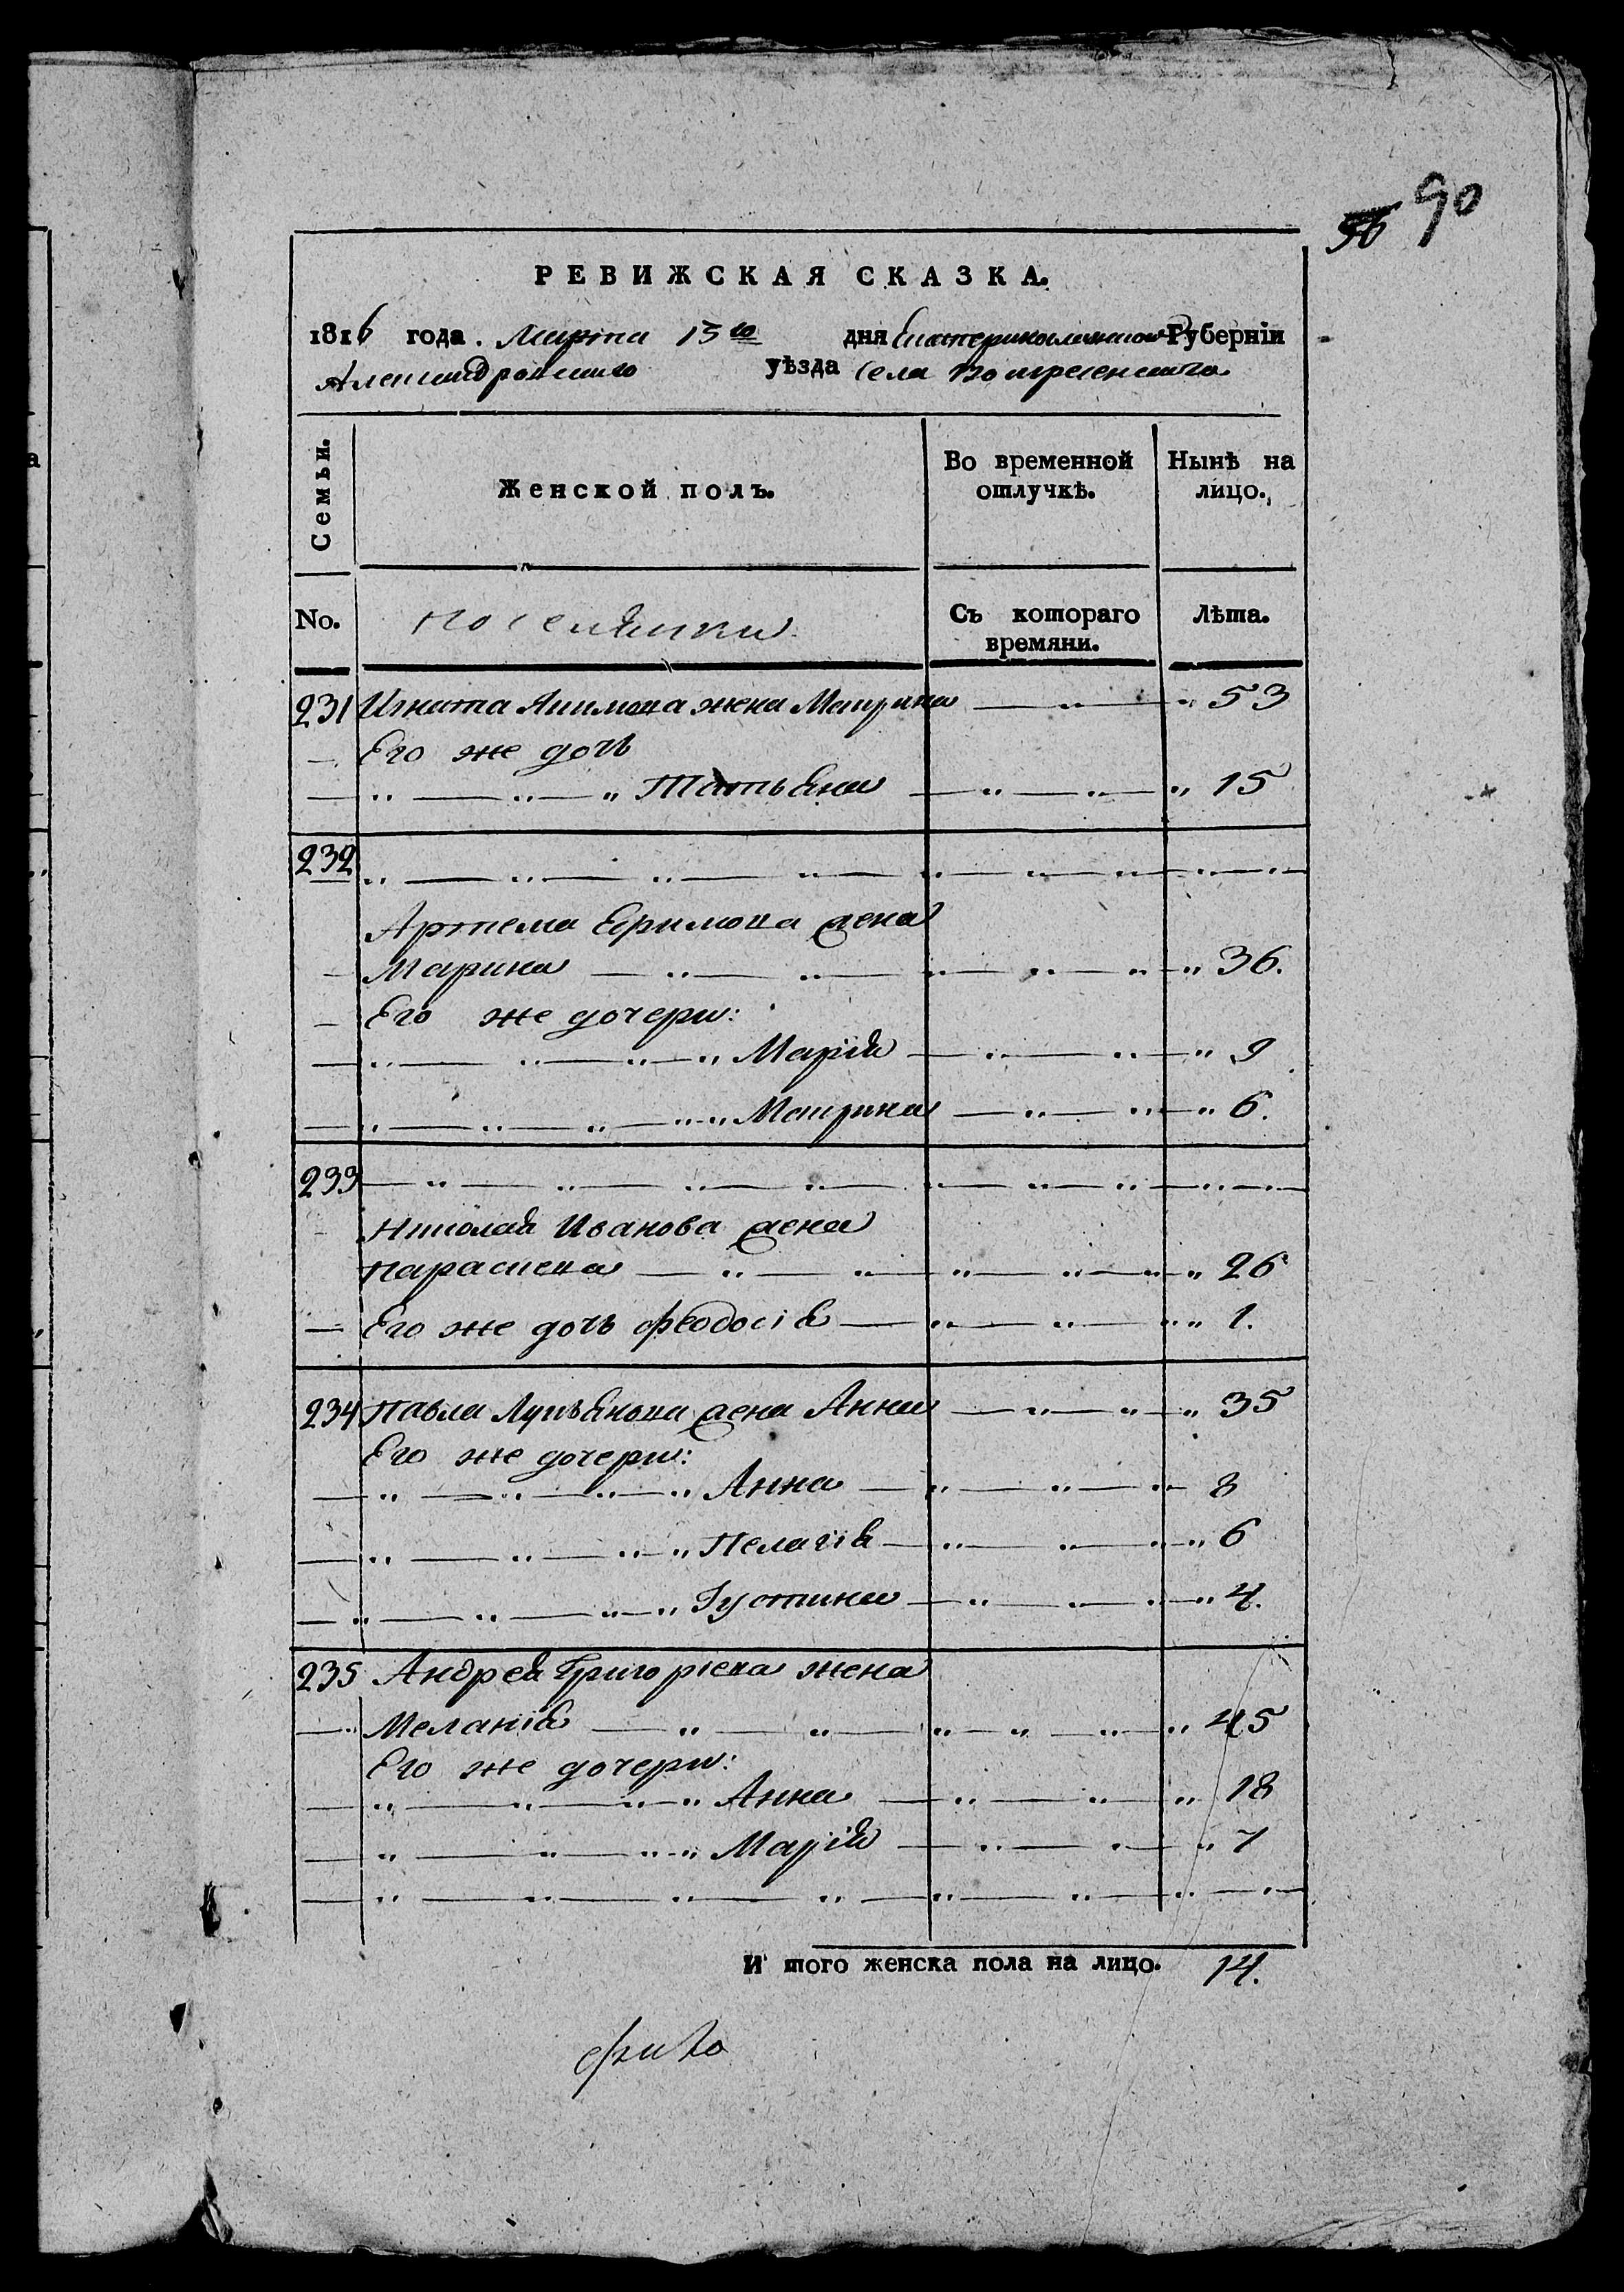 90
56
РЕВИЖСКАЯ СКАЗКА.
1816 года. Марта 15го дня Екатеринославской Губерніи
Александровского уѣзда села Воскресенскаго
Семьи. Женской полъ. Во временной отлучкѣ. Нынѣ на лицо.
No. поселянки Съ котораго времяни. Лѣта.
231 Игната Акимова жена Матрина — „ — „ 53
— Его же дочь
— „ — „ — „ Татьяна — „ — „ — „ 15
232 „ — „ — „ — „ — „ — „ — „ — „ — „ —
Артема Ефимова жена
— Марина — „ — „ — „ — „ — „ — „ 36.
— Его же дочери:
— „ — „ — „ — „ Марія — „ — „ — „ 9
— „ — „ — „ — „ „ Матрина — „ — „ — „ 6.
233 — „ — „ — „ — „ — „ — „ — „ — „ — „ —
Николая Иванова жена
Параскева — „ — „ — „ — „ — „ — „ 26
— Его же дочь Феодосія — „ — „ — „ „ 1.
234 Павла Лукьянова жена Анна — „ — „ — „ 35
Его же дочери:
— „ — „ — „ — „ Анна — „ — „ — „ — 8
— „ — „ — „ — „ Пелагія — „ — „ — „ — „ 6
— „ — „ — „ — „ Іустина — „ — „ — „ — „ 4.
235 Андрея Григоріева жена
— „ Меланія — „ — „ — „ — „ — „ — „ 45
Его же дочери:
— „ — „ — „ — „ Анна — „ — „ — „ 18
— „ — „ — „ — „ Марія — „ — „ — „ 7
— „ — „ — „ — „ — „ — „ — „ — „ —
И того женска пола на лицо. 14.